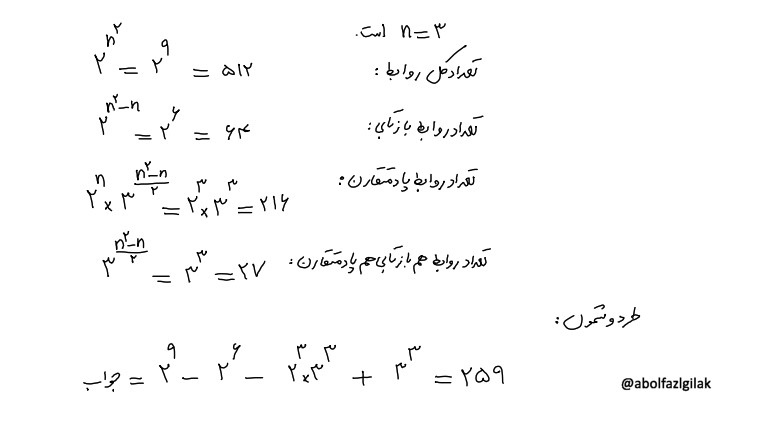 n = ۳ است.
تعداد کل روابط : ۲^{n^۲} = ۲^۹ = ۵۱۲
تعداد روابط بازتابی : ۲^{n^۲-n} = ۲^۶ = ۶۴
تعداد روابط پادمتقارن : ۲^n × ۳^{\frac{n^۲-n}{۲}} = ۲^۳ × ۳^۳ = ۲۱۶
تعداد روابط هم بازتابی هم پادمتقارن : ۳^{\frac{n^۲-n}{۲}} = ۳^۳ = ۲۷
طرد و شمول :
جواب = ۲^۹ - ۲^۶ - ۲^۳ × ۳^۳ + ۳^۳ = ۲۵۹
@abolfazlgilak